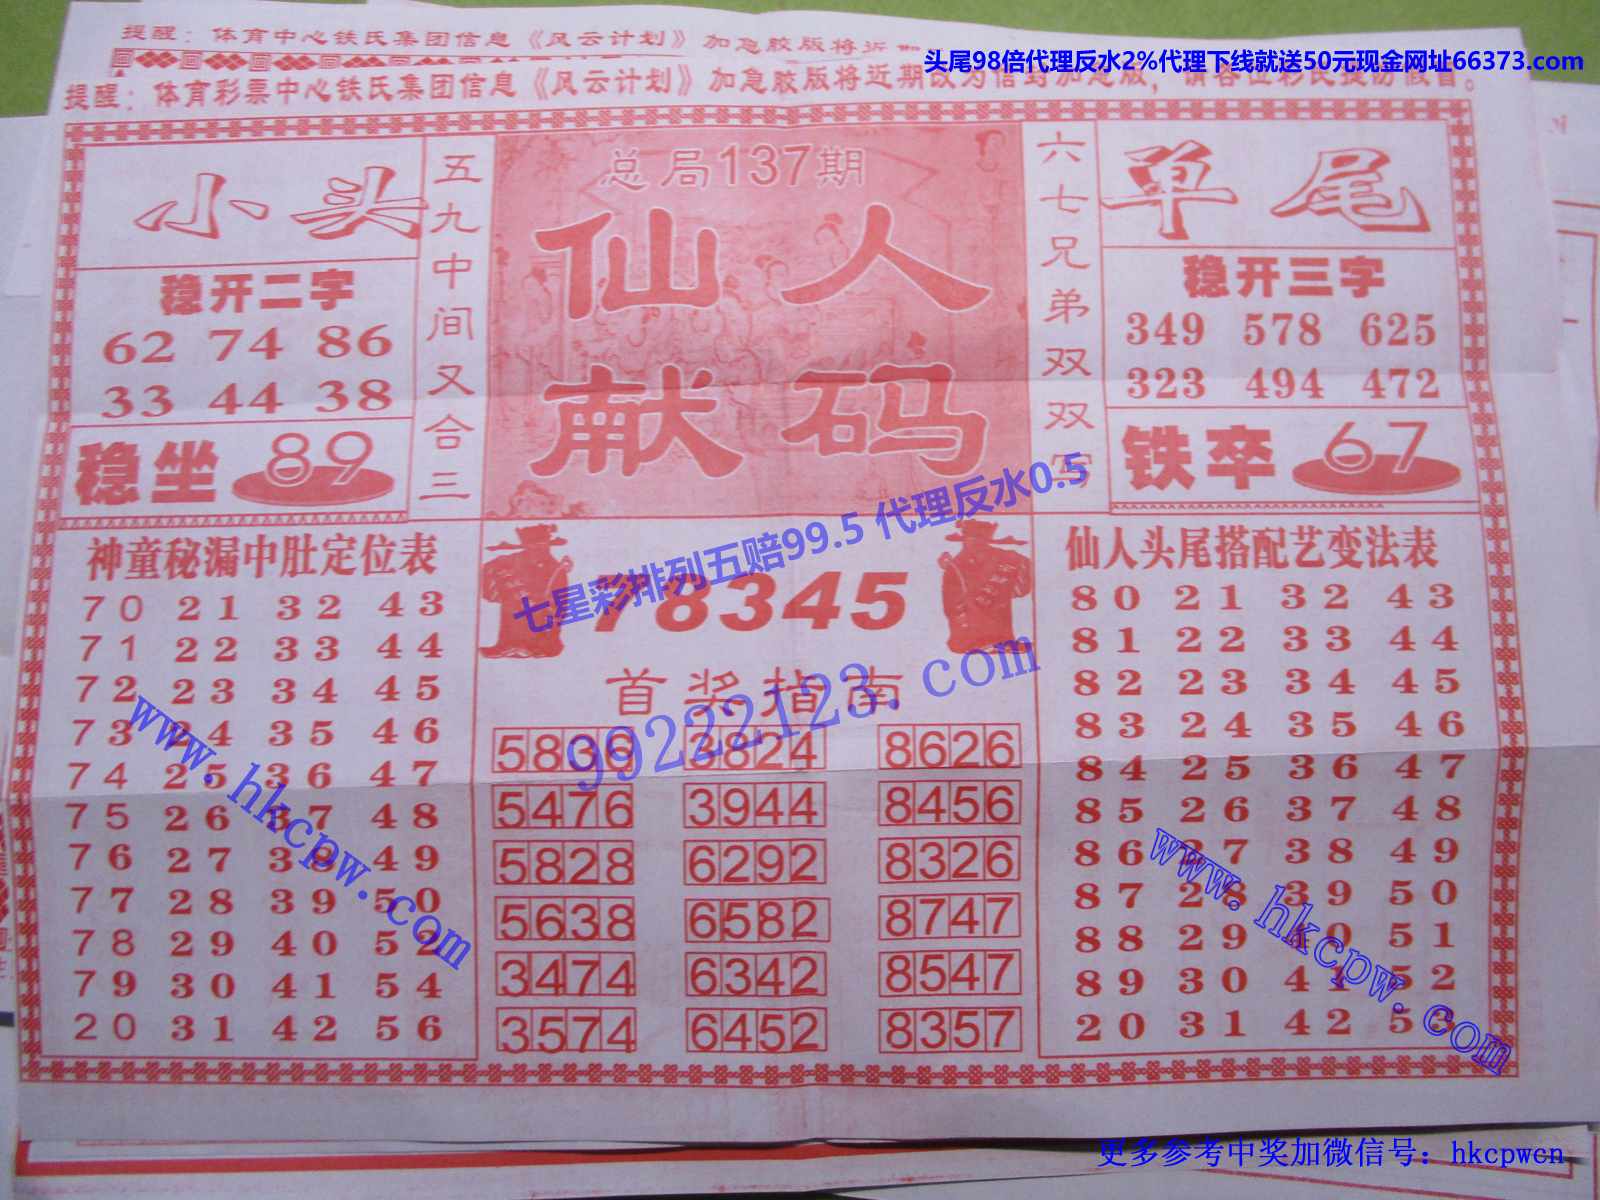 提醒：体育中心铁氏集团信息《风云计划》加急胶版将近
头尾98倍代理反水2%代理下线就送50元现金网址66373.com
提醒：体育彩票中心铁氏集团信息《风云计划》加急胶版将近期改为信封加急版，请各位彩民提防假冒。
小头
稳开二字
62 74 86
33 44 38
稳坐 89
五九中间又合三
总局137期
仙人
献码
六七兄弟双双写
单尾
稳开三字
349 578 625
323 494 472
铁卒 67
神童秘漏中肚定位表
70 21 32 43
71 22 33 44
72 23 34 45
73 24 35 46
74 25 36 47
75 26 37 48
76 27 38 49
77 28 39 50
78 29 40 52
79 30 41 54
20 31 42 56
www.hkcpw.com
七星彩排列五赔99.5 代理反水0.5
78345
99222123.com
首奖指南
5836 3824 8626
5476 3944 8456
5828 6292 8326
5638 6582 8747
3474 6342 8547
3574 6452 8357
仙人头尾搭配艺变法表
80 21 32 43
81 22 33 44
82 23 34 45
83 24 35 46
84 25 36 47
85 26 37 48
86 27 38 49
87 28 39 50
88 29 40 51
89 30 41 52
20 31 42 53
www.hkcpw.com
更多参考中奖加微信号：hkcpwcn